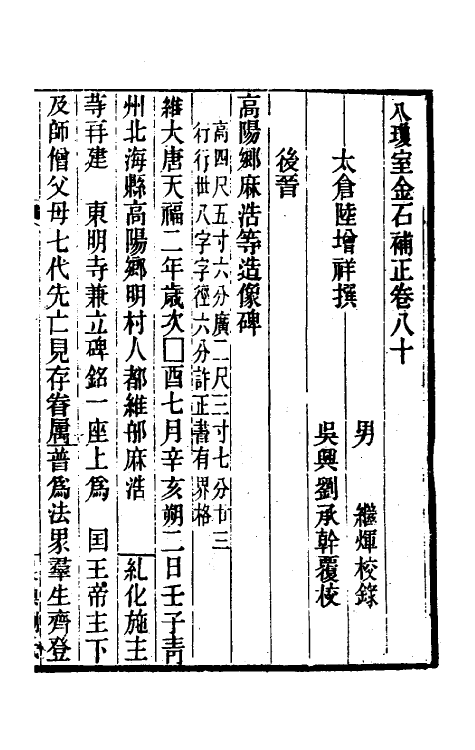 八瓊室金石補正卷八十
太倉陸增祥撰
男　繼煇校錄
吳興劉承幹覆校
後晉
高陽鄉麻浩等造像碑
高四尺五寸六分廣二尺三寸七分廿三
行行丗八字字徑六分許正書有界格
維大唐天福二年歲次囗酉七月辛亥朔二日壬子青
州北海縣高陽鄉明村人都維那麻浩　糺化施主
等再建　東明寺兼立碑銘一座上爲　囯王帝主下
及師僧父母七代先亡見存眷属普爲法界羣生齊登